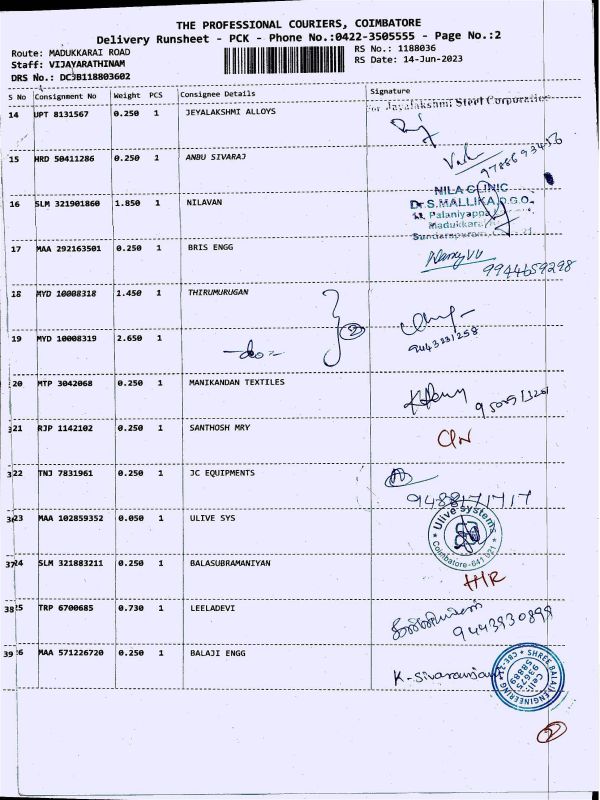 THE PROFESSIONAL COURIERS, COIMBATORE
Delivery Runsheet - PCK - Phone No.:0422-3505555 - Page No.:2
Route: MADUKKARAI ROAD
Staff: VIJAYARATHINAM
DRS No.: DC3B118803602
RS No.: 1188036
RS Date: 14-Jun-2023
S No Consignment No Weight PCS Consignee Details Signature
14 UPT 8131567 0.250 1 JEYALAKSHMI ALLOYS
For Jayalakshmi Steel Corporation
15 HRD 50411286 0.250 1 ANBU SIVARAJ
9788693456
16 SLM 321901860 1.850 1 NILAVAN
NILA CLINIC
Dr.S.MALLIKA,D.G.O.
Palaniyappa
Madukkarai
Sundarapuram,
17 MAA 292163501 0.250 1 BRIS ENGG
9944659298
18 MYD 10008318 1.450 1 THIRUMURUGAN
2
19 MYD 10008319 2.650 1
-do-
9443231258
20 MTP 3042068 0.250 1 MANIKANDAN TEXTILES
321 RJP 1142102 0.250 1 SANTHOSH MRY
C/N
322 TNJ 7831961 0.250 1 JC EQUIPMENTS
9488171717
3623 MAA 102859352 0.050 1 ULIVE SYS
Ulive Systems
Coimbatore-641 021
3724 SLM 321883211 0.250 1 BALASUBRAMANIYAN
HR
3825 TRP 6700685 0.730 1 LEELADEVI
9443930898
3926 MAA 571226720 0.250 1 BALAJI ENGG
K-Sivaranjani
SHREE BALAJI ENGINEERING
CBE-2
Cell:
93675
58889
2